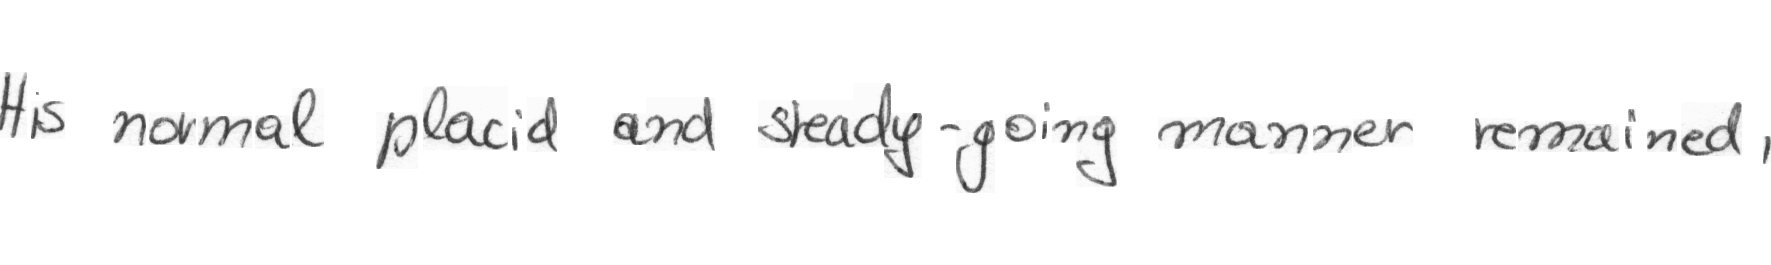 His normal placid and steady-going manner remained,